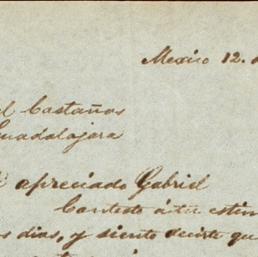 Mexico 12.
Castaños
Guadalajara
apreciado Gabriel
Contesto á tu estim
dias, y siento decirte qu